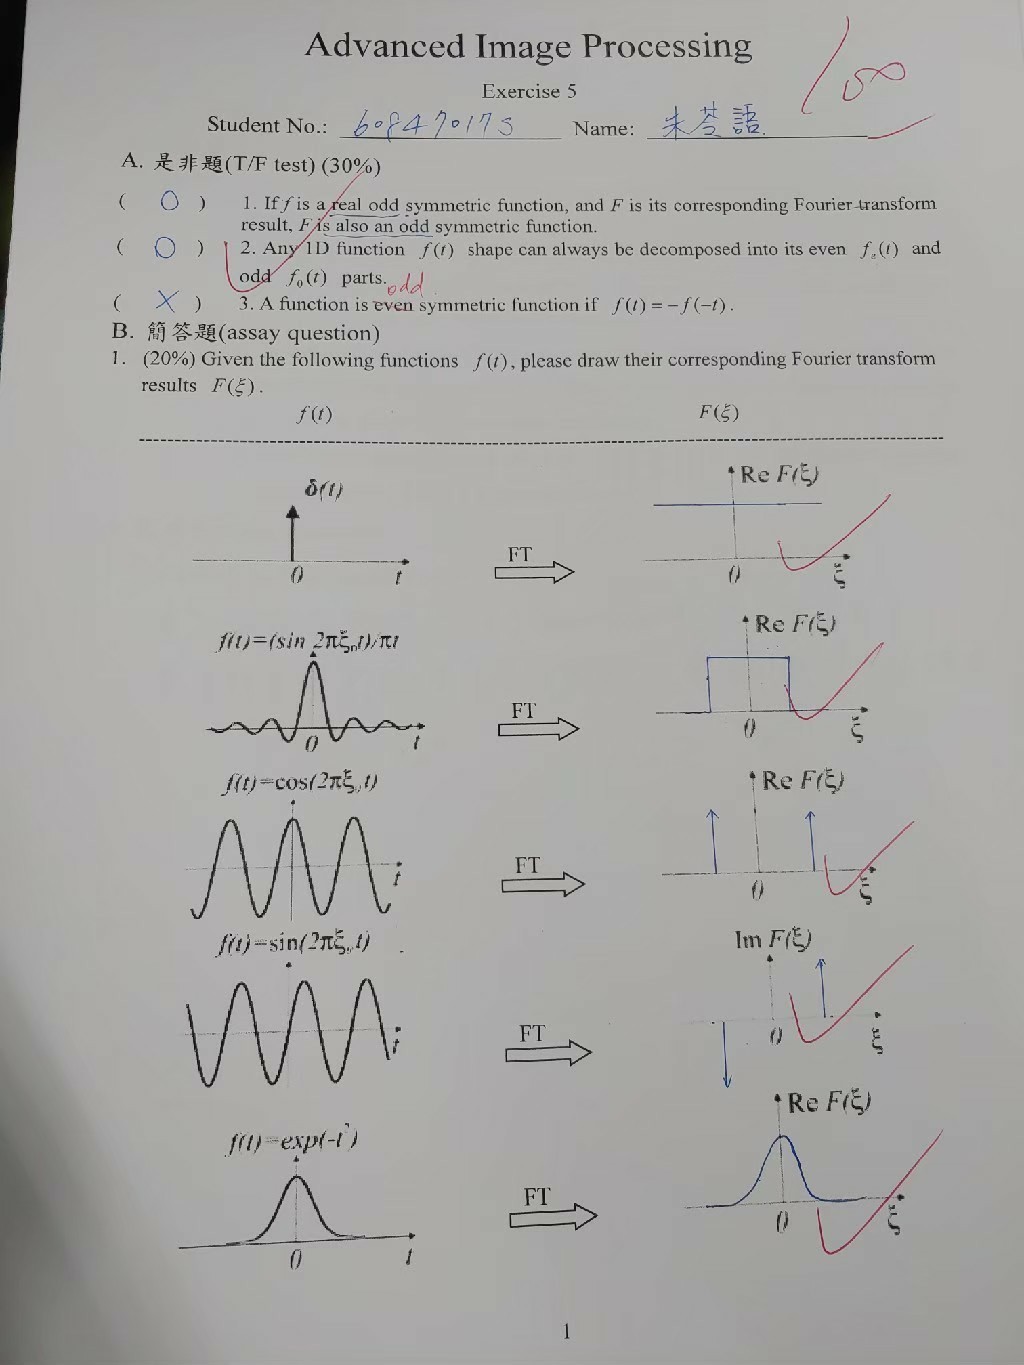 Advanced Image Processing
100
Exercise 5
Student No.: 608470173 Name: 朱苓語
A. 是非題(T/F test) (30%)
( O ) 1. If f is a real odd symmetric function, and F is its corresponding Fourier transform
result, F is also an odd symmetric function.
( O ) 2. Any 1D function f(t) shape can always be decomposed into its even fₑ(t) and
odd f₀(t) parts.
odd
( X ) 3. A function is even symmetric function if f(t) = −f(−t).
B. 簡答題(assay question)
1. (20%) Given the following functions f(t), please draw their corresponding Fourier transform
results F(ξ).
f(t) F(ξ)
δ(t) Re F(ξ)
FT
0 t 0 ξ
f(t)=(sin 2πξ₀t)/πt Re F(ξ)
FT
0 t 0 ξ
f(t)=cos(2πξ₀t) Re F(ξ)
FT
t 0 ξ
f(t)=sin(2πξ₀t) Im F(ξ)
FT
t 0 ξ
f(t)=exp(-t²) Re F(ξ)
FT
0 t 0 ξ
1